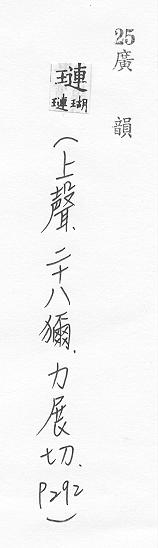 25廣韻
璉
瑚璉
(上聲、二十八獮、力展切、P292)